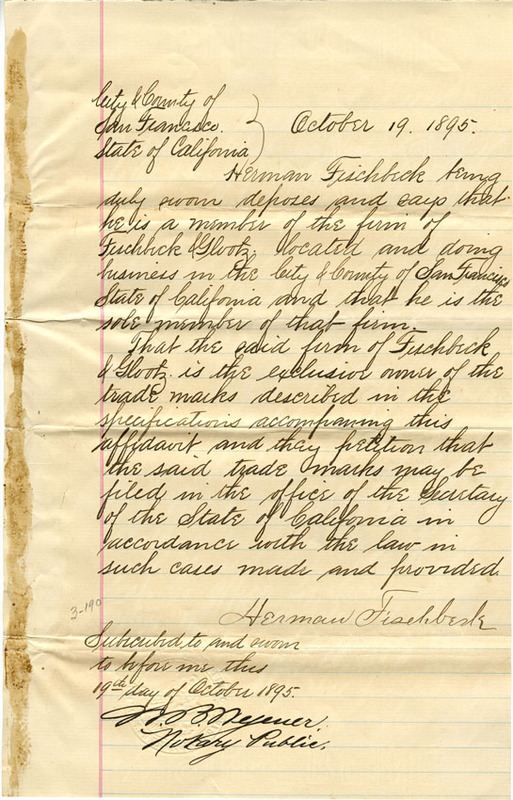 City & County of
San Francisco. October 19. 1895.
State of California
Herman Fischbeck being
duly sworn deposes and says that
he is a member of the firm of
Fischbeck & Glootz, located and doing
business in the City & County of San Francisco
State of California and that he is the
sole member of that firm.
That the said firm of Fischbeck
& Glootz. is the exclusive owner of the
trade marks described in the
specifications accompaning this
affidavit and they petition that
the said trade marks may be
filed in the office of the Secretary
of the State of California in
accordance with the law in
such cases made and provided.
3-190
Herman Fischbeck
Subscribed to and sworn
to before me this
19th day of October 1895.
Notary Public.